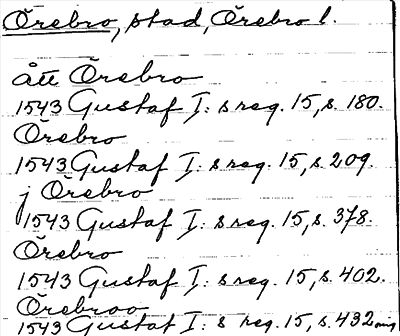 Örebro, stad, Örebro l.
ått Örebro
1543 Gustaf I: s reg. 15, s. 180.
Örebro
1543 Gustaf I: s reg. 15, s. 209.
j Örebro
1543 Gustaf I: s reg. 15, s. 378.
Örebro
1543 Gustaf I: s reg. 15, s. 402.
Örebroo
1543 Gustaf I: s reg. 15, s. 432